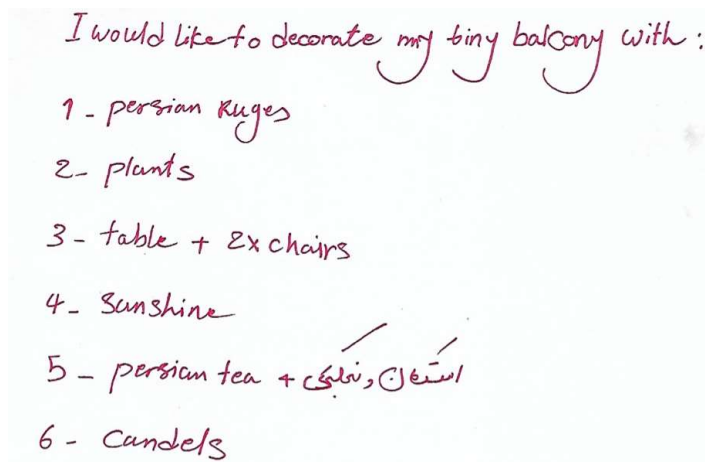 I would like to decorate my tiny balcony with :
1 - persian Ruges
2 - plants
3 - table + 2x chairs
4 - Sunshine
5 - persian tea + استکان و نعلبکی
6 - Candels